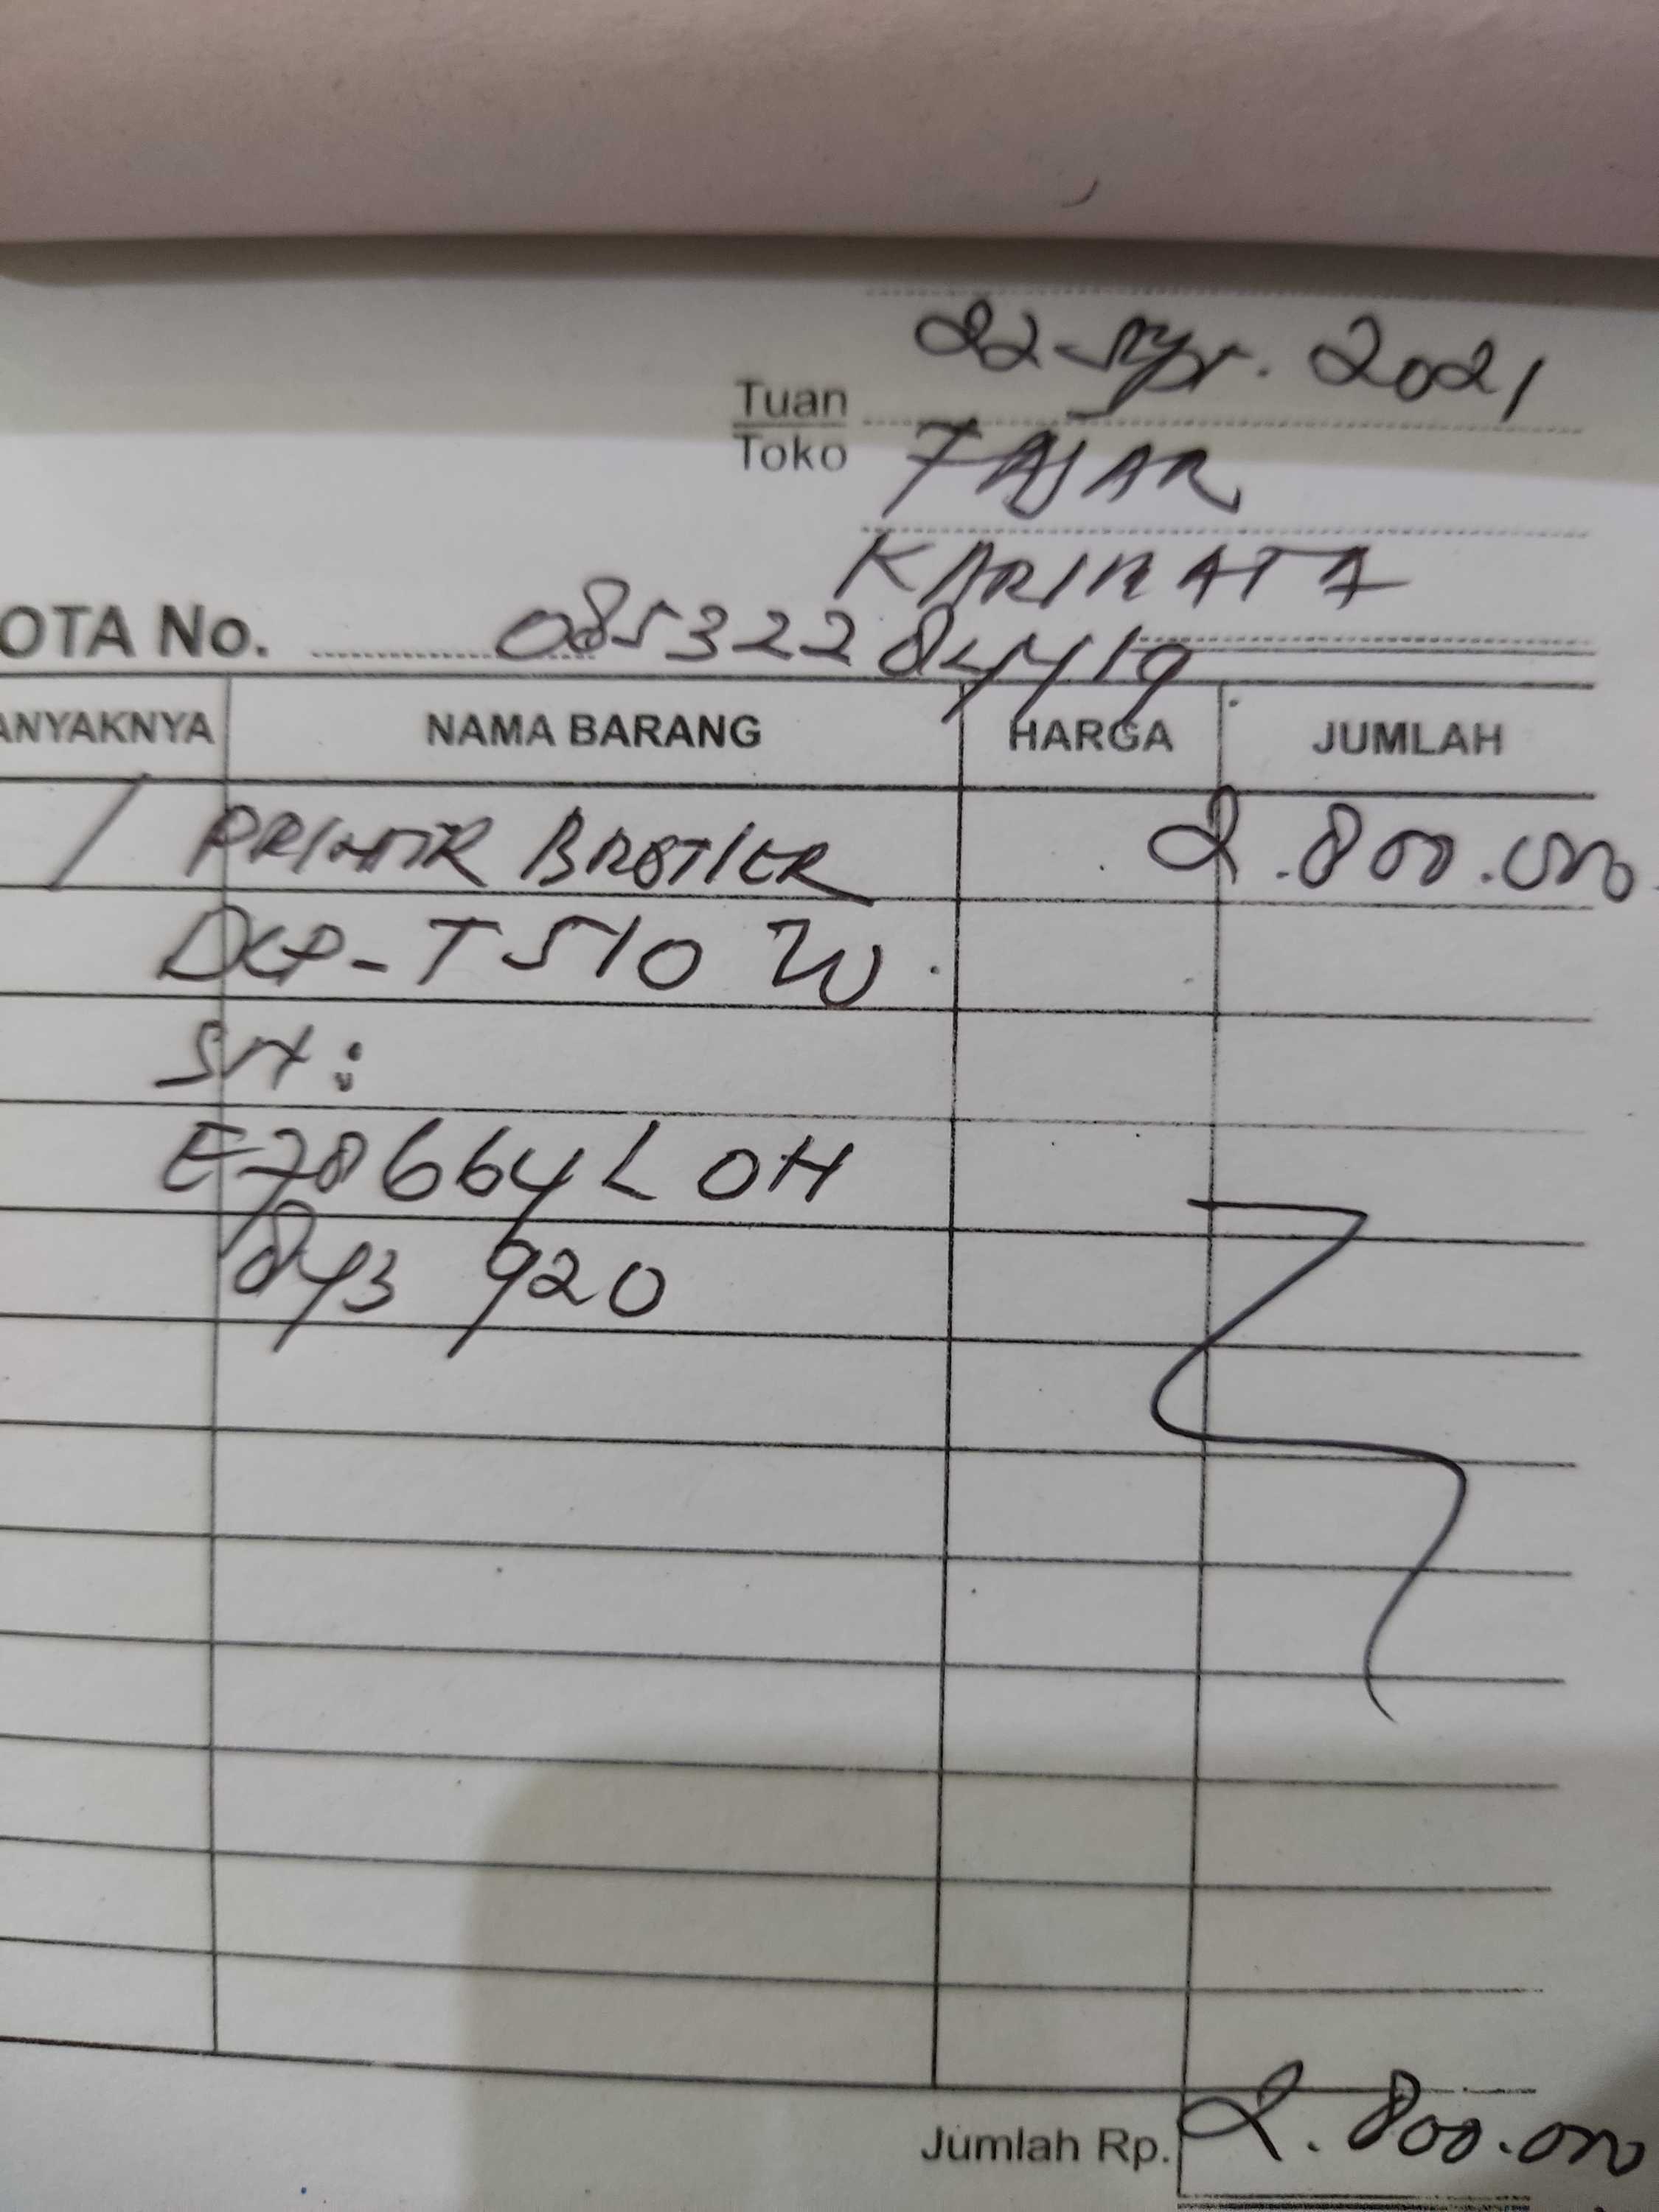 22 Apr. 2021
Tuan
Toko FAJAR
KARIMATA
OTA No. 085322284419
ANYAKNYA NAMA BARANG HARGA JUMLAH
1 PRINTER BROTHER 2.800.000
DCP-T510 W.
S/N:
E78664L0H
843920
Jumlah Rp. 2.800.000